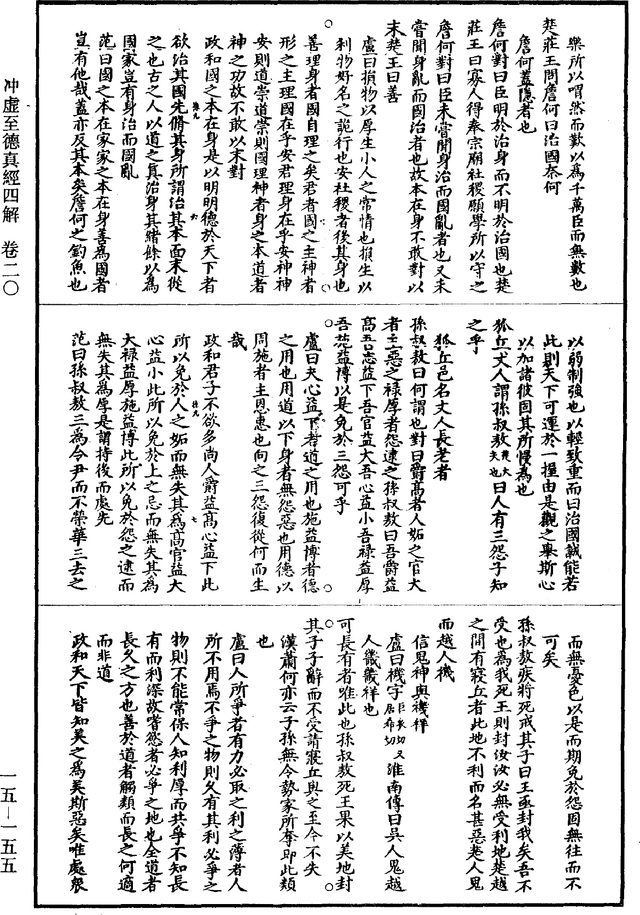 樂所以喟然而歎以為千萬臣而無數也
楚莊王問詹何曰治國奈何
詹何蓋隱者也
詹何對曰臣明於治身而不明於治國也楚
莊王曰寡人得奉宗廟社稷願學所以守之
詹何對曰臣未嘗聞身治而國亂者也又未
嘗聞身亂而國治者也故本在身不敢對以
末楚王曰善
盧曰損物以厚生小人之常情也損生以
利物好名之詭行也安社稷者後其身也
善理身者國自理之矣君者國之主神者
形之主理國在乎安君理身在乎安神神
安則道崇道崇則國理神者身之本道者
神之功故不敢以末對
政和國之本在身是以明明德於天下者
欲治其國先脩其身所謂治其本而末從
之也古之人以道之真治身其緒餘以為
國家豈有身治而國亂
范曰國之本在家家之本在身善為國者
豈有他哉蓋亦反其本矣詹何之釣魚也
冲虛至德真經四解 卷二〇
以弱制強也以輕致重而曰治國誠能若
此則天下可運於一握由是觀之舉斯心
以加諸彼固其所慢為也
狐丘丈人謂孫叔敖曰人有三怨子知
之乎
狐丘邑名丈人長老者
孫叔敖曰何謂也對曰爵高者人妬之官大
者主惡之祿厚者怨逮之孫叔敖曰吾爵益
高吾志益下吾官益大吾心益小吾祿益厚
吾施益博以是免於三怨可乎
盧曰夫心益下者道之用也施益博者德
之用也用道以下身者無怨惡也用德以
周施者主恩惠也向之三怨復從何而生
哉
政和君子不欲多尚人爵益高心益下此
所以免於人之妬而無失其為高官益大
心益小此所以免於上之忌而無失其為
大祿益厚施益博此所以免於怨之逮而
無失其為厚是謂持後而處先
范曰孫叔敖三為令尹而不榮華三去之
而無憂色以是而期免於怨固無往而不
可矣
孫叔敖疾將死戒其子曰王亟封我矣吾不
受也為我死王則封汝汝必無受利地楚越
之間有寢丘者此地不利而名甚惡楚人鬼
而越人禨
信鬼神與禨祥
盧曰禨字巨衣切又居希切淮南傳曰吳人鬼越
人禨禨祥也
可長有者唯此也孫叔敖死王果以美地封
其子子辭而不受請寢丘與之至今不失
漢蕭何亦云子孫無令勢家所奪即此類
也
盧曰人所爭者有力必取之利之薄者人
所不用焉不爭之物則久有其利必爭之
物則不能常保人知利厚而共爭不知長
有而利深故嗜慾者必爭之地也全道者
長久之方也善於道者觸類而長之何適
而非道
政和天下皆知美之為美斯惡矣唯處衆
一五—一五五